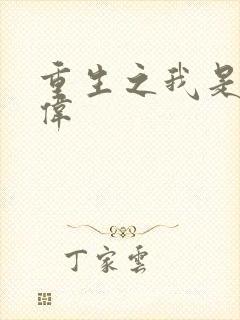 重生之我是
偉
丁家雲